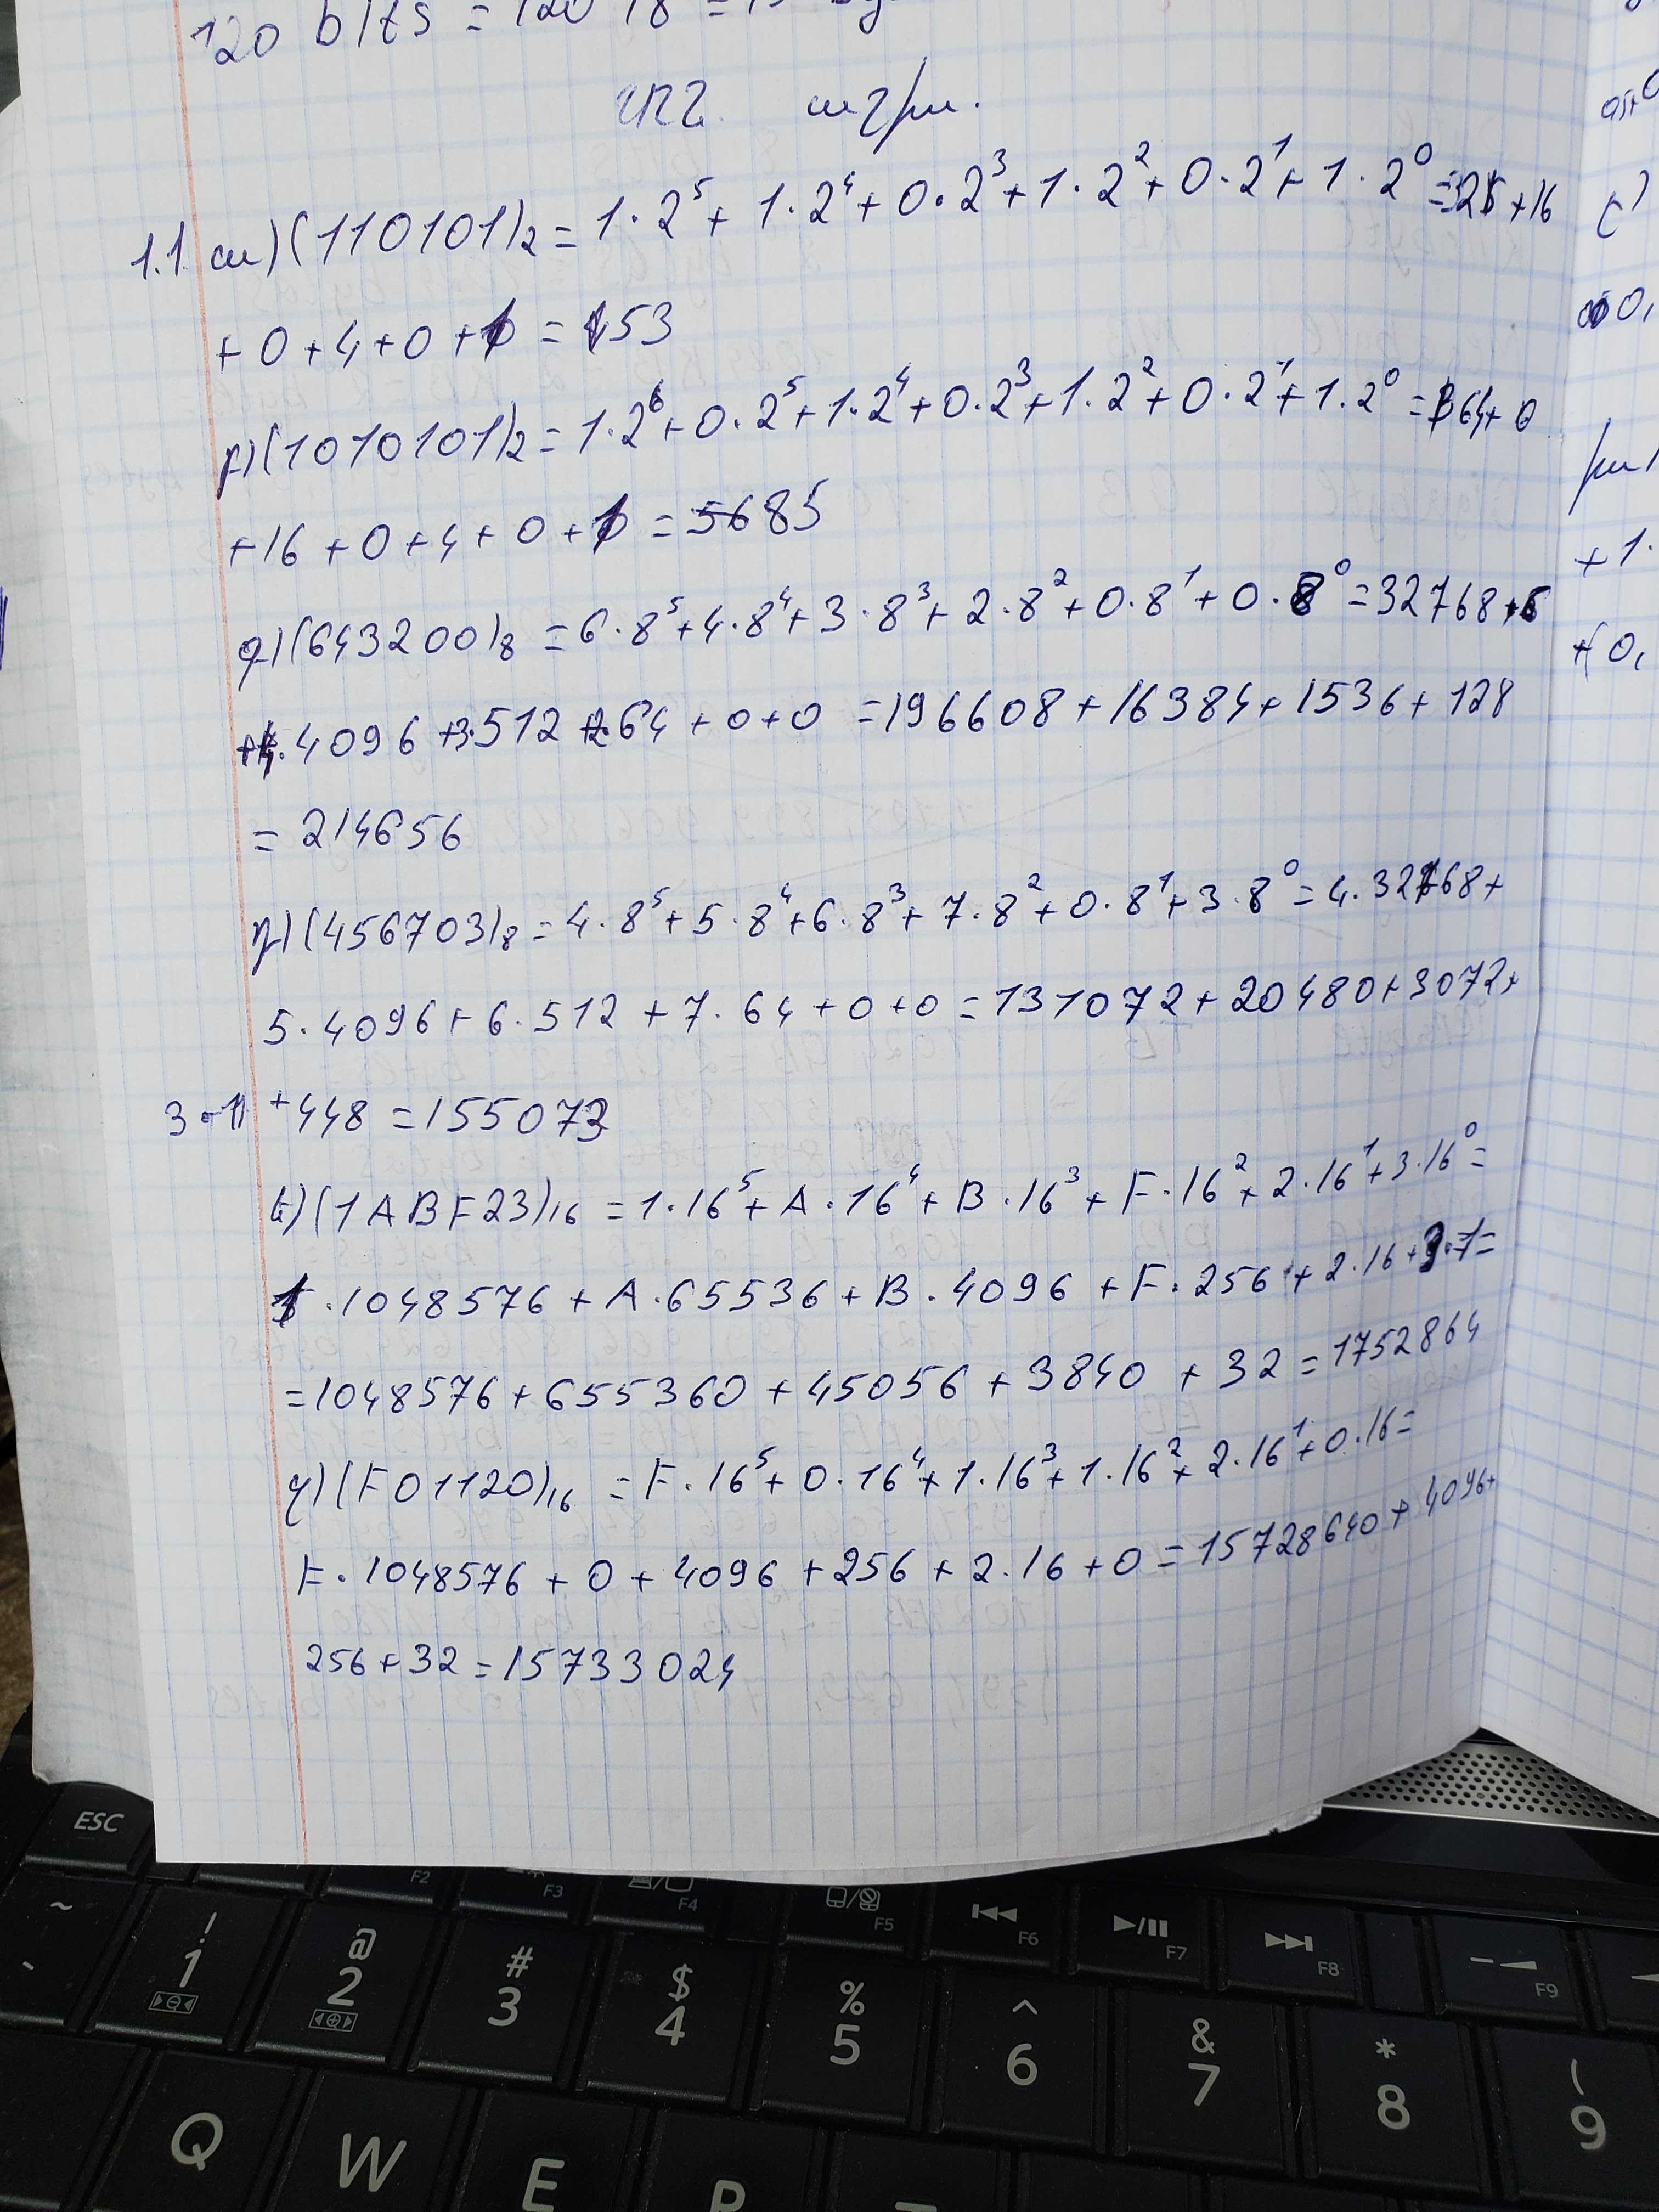 120 bits = 120 / 8 = 15
1.1 ա) (110101)₂ = 1·2⁵ + 1·2⁴ + 0·2³ + 1·2² + 0·2¹ + 1·2⁰ = 32 + 16
+ 0 + 4 + 0 + 1 = 53
բ) (1010101)₂ = 1·2⁶ + 0·2⁵ + 1·2⁴ + 0·2³ + 1·2² + 0·2¹ + 1·2⁰ = 64 + 0
+ 16 + 0 + 4 + 0 + 1 = 56 85
գ) (643200)₈ = 6·8⁵ + 4·8⁴ + 3·8³ + 2·8² + 0·8¹ + 0·8⁰ = 32768·6
+4·4096 + 3·512 + 2·64 + 0 + 0 = 196608 + 16384 + 1536 + 128
= 214656
դ) (456703)₈ = 4·8⁵ + 5·8⁴ + 6·8³ + 7·8² + 0·8¹ + 3·8⁰ = 4·32768 +
5·4096 + 6·512 + 7·64 + 0 + 0 = 131072 + 20480 + 3072 +
+ 448 = 155073
ե) (1ABF23)₁₆ = 1·16⁵ + A·16⁴ + B·16³ + F·16² + 2·16¹ + 3·16⁰ =
1·1048576 + A·65536 + B·4096 + F·256 + 2·16 + 3·1 =
= 1048576 + 655360 + 45056 + 3840 + 32 = 1752864
զ) (F01120)₁₆ = F·16⁵ + 0·16⁴ + 1·16³ + 1·16² + 2·16¹ + 0·16 =
F·1048576 + 0 + 4096 + 256 + 2·16 + 0 = 15728640 + 4096 +
256 + 32 = 15733024
ESC
F2
F3
F4
F5
F6
F7
F8
F9
~
! 1
@ 2
# 3
$ 4
% 5
^ 6
& 7
* 8
( 9
Q
W
E